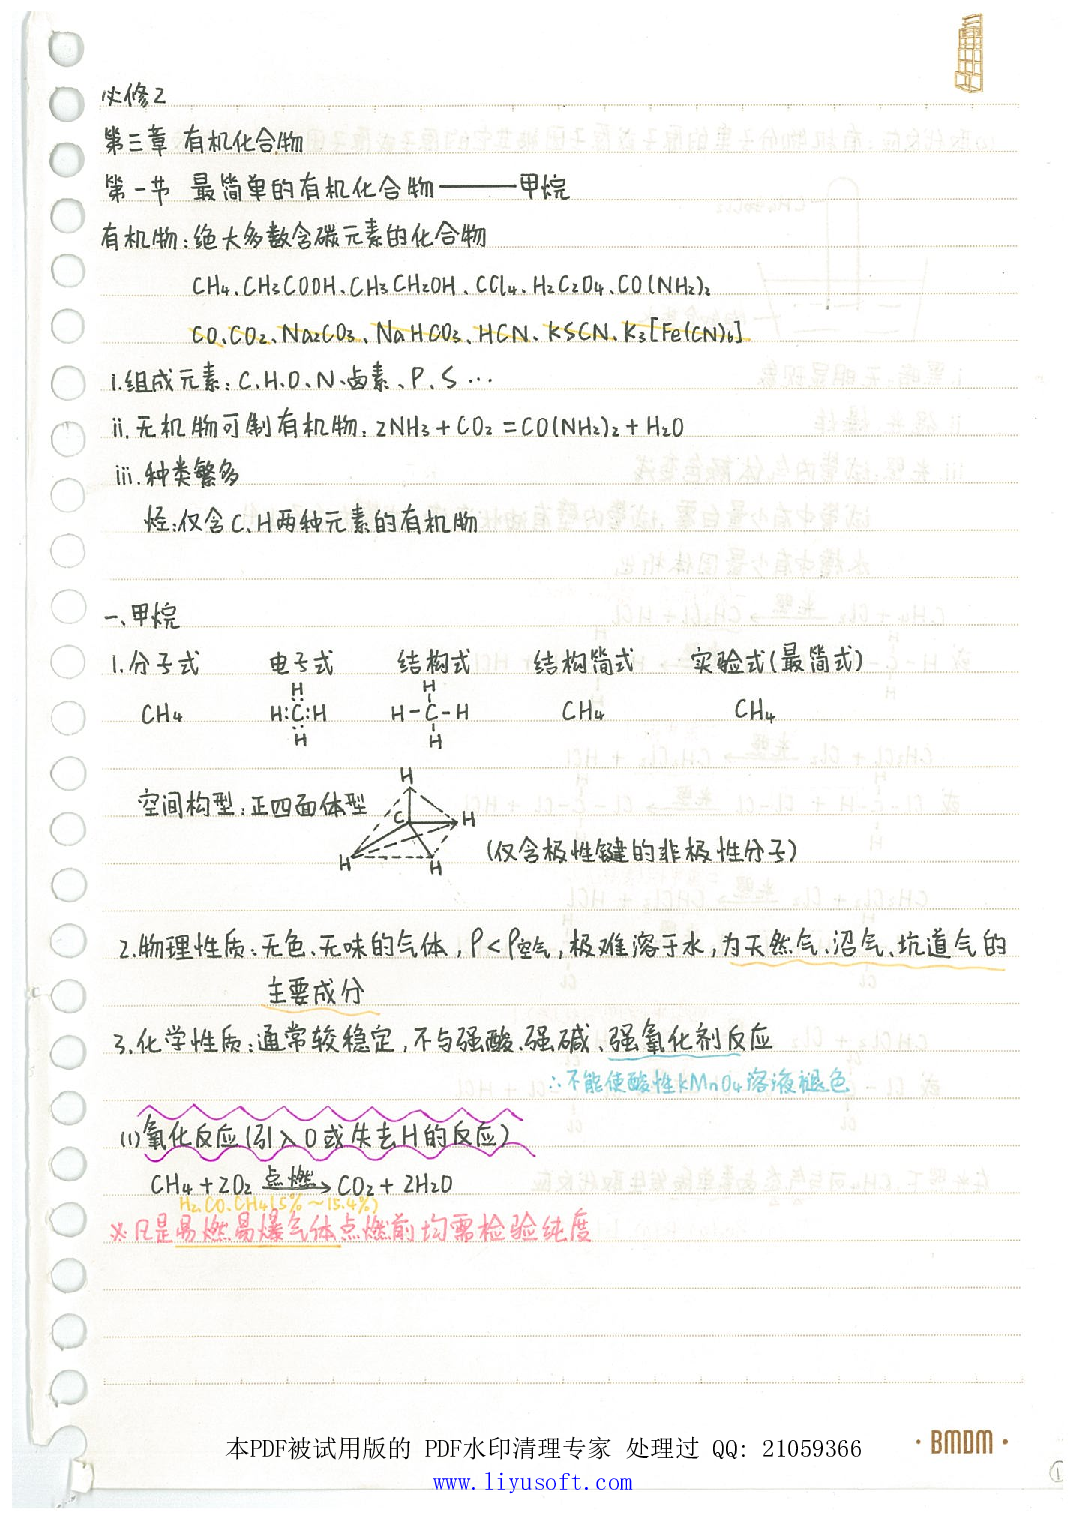 必修2
第三章 有机化合物
第一节 最简单的有机化合物——甲烷
有机物:绝大多数含碳元素的化合物
CH₄、CH₃COOH、CH₃CH₂OH、CCl₄、H₂C₂O₄、CO(NH₂)₂
CO、CO₂、Na₂CO₃、NaHCO₃、HCN、KSCN、K₃[Fe(CN)₆]
i.组成元素:C、H、O、N、卤素、P、S…
ii.无机物可制有机物:2NH₃+CO₂=CO(NH₂)₂+H₂O
iii.种类繁多
烃:仅含C、H两种元素的有机物
一、甲烷
1.分子式 电子式 结构式 结构简式 实验式(最简式)
H H
CH₄ H:C:H H-C-H CH₄ CH₄
H H
H
空间构型:正四面体型 C H
H H (仅含极性键的非极性分子)
2.物理性质:无色、无味的气体,ρ<ρ空气,极难溶于水,为天然气、沼气、坑道气的
主要成分
3.化学性质:通常较稳定,不与强酸、强碱、强氧化剂反应
∴不能使酸性KMnO₄溶液褪色
(1)氧化反应(引入O或失去H的反应)
CH₄+2O₂ 点燃→ CO₂+2H₂O
H₂、CO、CH₄(5%~15.4%)
※凡是易燃易爆气体点燃前均需检验纯度
本PDF被试用版的 PDF水印清理专家 处理过 QQ: 21059366
www.liyusoft.com
·BMDM·
1